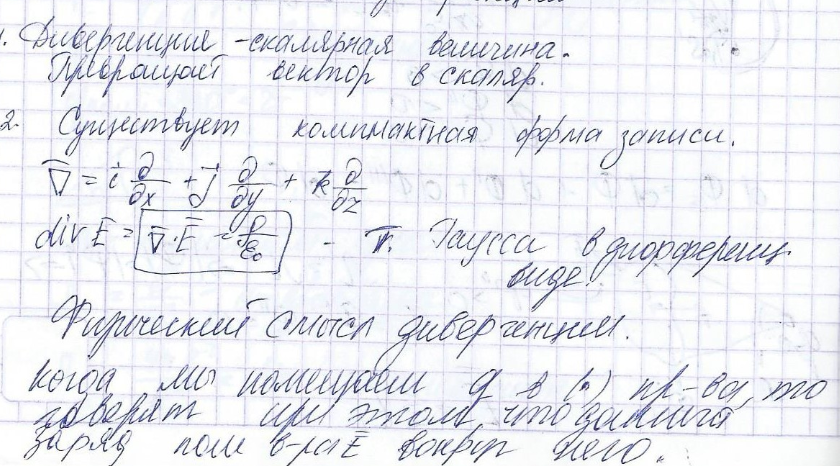 1. Дивергенция - скалярная величина.
Превращает вектор в скаляр.
2. Существует компактная форма записи.
∇̄ = i⃗ ∂/∂x + j⃗ ∂/∂y + k⃗ ∂/∂z
div E̅ = ∇̅·E̅ = ρ/ε₀ - т. Гаусса в дифференц.
виде.
Физический смысл дивергенции.
Когда мы помещаем q в (•) пр-ва, то
говорят при этом, что
заряд поле в-ра E̅ вокруг него.